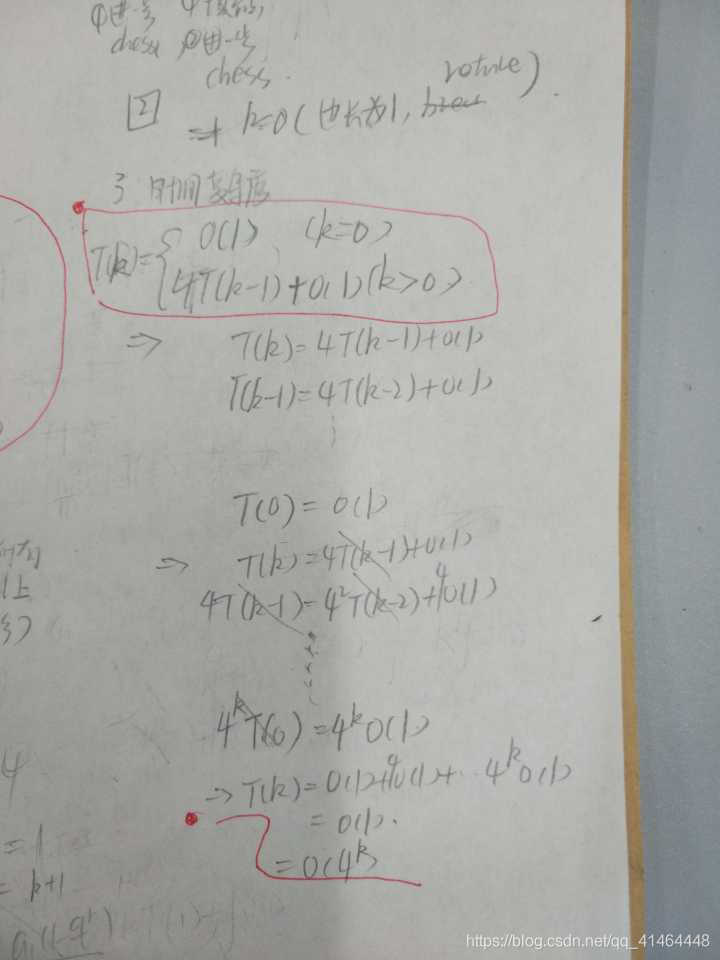 chess
chess.
2
⇒ k=0(边长为1, return)
3 时间复杂度
T(k)={ O(1) (k=0)
4T(k-1)+O(1)(k>0)
⇒ T(k)=4T(k-1)+O(1)
T(k-1)=4T(k-2)+O(1)
T(0)=O(1)
⇒ T(k)=4T(k-1)+O(1)
4T(k-1)=4²T(k-2)+4O(1)
4^k T(0)=4^k O(1)
⇒ T(k)=O(1)+4O(1)+ ·· 4^k O(1)
= O(1).
= O(4^k)
4
= 1
= k+1
https://blog.csdn.net/qq_41464448